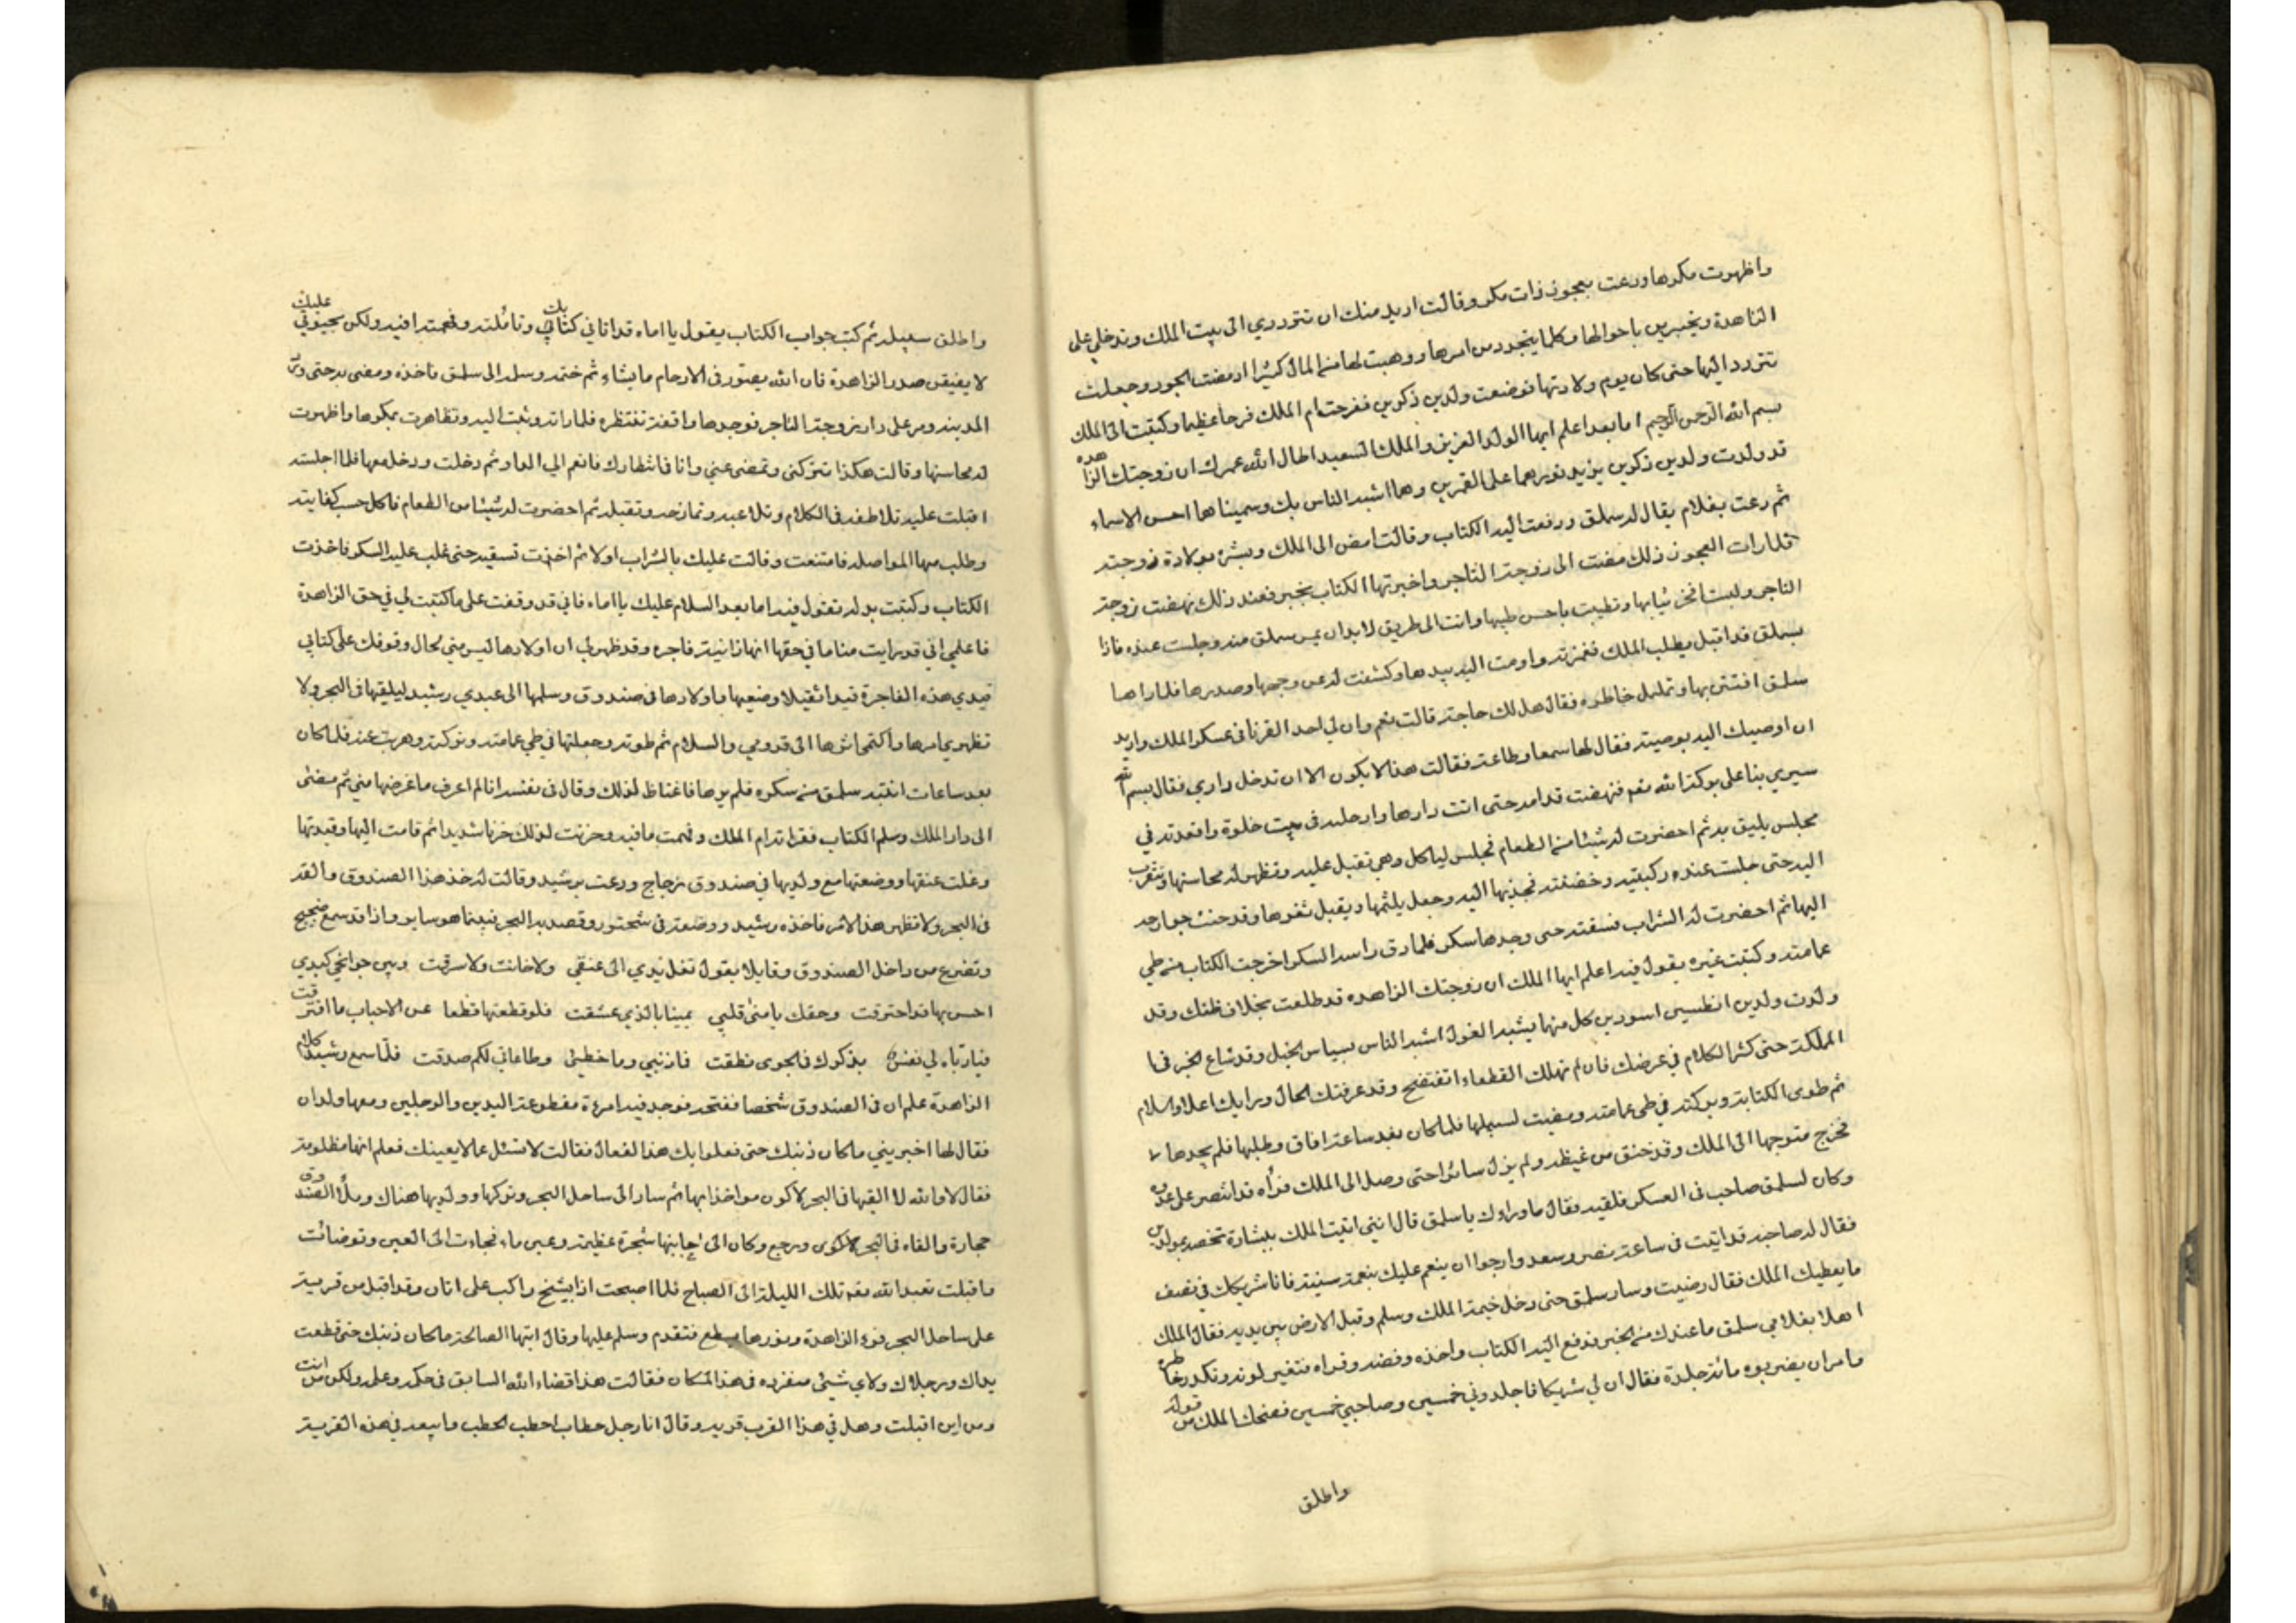 واظهرت مكرها ودعت بعجوز ذات مكر وقالت اريد منك ان تترددي الى بيت الملك وتدخلي على
الزاهدة وتخبريني باحوالها وكلما يتجدد من امرها ووهبت لها من المال كثيرا فمضت العجوز وجعلت
تتردد اليها حتى كان يوم ولادتها فوضعت ولدين ذكرين ففرحت ام الملك فرحا عظيما وكتبت الى الملك
بسم الله الرحمن الرحيم اما بعد اعلم ايها الولد العزيز والملك السعيد اطال الله عمرك ان زوجتك الزاهده
قد ولدت ولدين ذكرين يزيد نورهما على القمرين وهما اشبه الناس بك وسميناهما احسن الاسماء
ثم دعت بغلام يقال له سملق ودفعت اليه الكتاب وقالت امض الى الملك وبشره بولادة زوجته
فلما رات العجوز ذلك مضت الى زوجة التاجر واخبرتها الكتاب بخبر فعند ذلك نهضت زوجة
التاجر ولبست افخر ثيابها وتطيبت باحسن طيبها واتت الى طريق لا بد ان يمر سملق منه وجلست عنده فاذا
بسملق قد اقبل يطلب الملك فغمزته واومت اليه بيدها وكشفت له عن وجهها وصدرها فلما راها
سملق افتتن بها وتململ خاطره فقال هل لك حاجة قالت نعم وان لي احد القرنا في عسكر الملك واريد
ان اوصيك اليه بوصية فقال لها سمعا وطاعة فقالت هذا لا يكون الا ان تدخل داري فقال بسم الله
سيري بنا على بركة الله فنهضت قدامه حتى اتت دارها وادخلته في بيت خلوة واقعدته في
مجلس يليق به ثم احضرت له شيئا من الطعام فجلس لياكل وهي تقبل عليه وتظهر له محاسنها وتتقرب
اليه حتى جلست عنده ركبتيه وحضنته فجذبها اليه وجعل يلثمها ويقبل ثغرها وقد حنت جوارحه
اليها ثم احضرت له الشراب فسقته حتى وجدها سكر فلما دق راسه السكر اخرجت الكتاب من طي
عمامته وكتبت غيره يقول فيه اعلم ايها الملك ان زوجتك الزاهده قد طلعت بخلاف ظنك وقد
ولدت ولدين افطسين اسودين كل منهما يشبه الغول اشبه الناس بسياس الخيل وقد شاع الخبر في
المملكة حتى كثر الكلام في عرضك فان لم تهلك القطعاء تفتضح وقد عرفتك الحال ورايك اعلا والسلام
ثم طوى الكتابة وتركته في طي عمامته ومضت لسبيلها فلما كان بعد ساعة افاق وطلبها فلم يجدها
فخرج متوجها الى الملك وقد خنق من غيظه ولم يزل سائرا حتى وصل الى الملك فرآه قد انتصر على عدوه
وكان لسملق صاحب في العسكر فلقيه فقال ما وراءك يا سملق قال انني اتيت الملك ببشارة تخصه بمولودين
فقال له صاحبه قد اتيت في ساعة نصر وسعد وارجوا ان ينعم عليك بنعمة سنية فانا شريكك في نصف
ما يعطيك الملك فقال رضيت وسار سملق حتى دخل خيمة الملك وسلم وقبل الارض بين يديه فقال الملك
اهلا بغلامي سملق ما عندك من الخبر فدفع اليه الكتاب واخذه وفضه وقراه فتغير لونه وتكدر خاطره
فامر ان يضربوه مائة جلدة فقال ان لي شريكا فاجلدوني خمسين وصاحبي خمسين فضحك الملك من قوله
واطلق
واطلق سبيله ثم كتب جواب الكتاب يقول يا اماه قد اتاني كتابك وتاملته وفهمت ما فيه ولكن يجب عليك
لا يضيقن صدر الزاهدة فان الله يصور في الارحام ما يشاء ثم ختمه وسلمه الى سملق فاخذه ومضى به حتى دخل
المدينه ومر على دار زوجة التاجر فوجدها واقفة تنتظره فلما راته وثبت اليه وتظاهرت بمكرها واظهرت
له محاسنها وقالت هكذا تتركني وتمضي عني وانا في انتظارك فانعم الي العادة ثم دخلت ودخل معها فلما اجلسته
اقبلت عليه تلاطفه في الكلام وتلاعبه وتمازحه وتقبله ثم احضرت له شيئا من الطعام فاكل حسب كفايته
وطلب منها المواصله فامتنعت وقالت عليك بالشراب اولا ثم اخذت تسقيه حتى غلب عليه السكر فاخذت
الكتاب وكتبت بدله تقول فيه اما بعد السلام عليك يا اماه فاني قد وقفت على ما كتبت لي في حق الزاهدة
فاعلمي اني قد رايت مناما في حقها انها زانية فاجره وقد ظهر لي ان اولادها ليس مني فحال وقوفك على كتابي
قيدي هذه الفاجرة قيدا ثقيلا وضعيها واولادها في صندوق وسلمها الى عبدي رشيد ليلقيها في البحر ولا
تظهري امرها واكتمي اثرها الى قدومي والسلام ثم طوته وجعلتها في طي عمامته وتركته وهربت عنه فلما كان
بعد ساعات انتبه سملق من سكره فلم يرها فاغتاظ لذلك وقال في نفسه انا لم اعرف ما غرضها مني ثم مضى
الى دار الملك وسلم الكتاب فقراته ام الملك وفهمت ما فيه وحزنت لذلك حزنا شديدا ثم قامت اليها وقيدتها
وغلت عنقها ووضعتها مع ولديها في صندوق زجاج ودعت برشيد وقالت له خذ هذا الصندوق والقه
في البحر ولا تظهر هذا الامر فاخذه رشيد ووضعه في شختور وقصد به البحر فبينما هو ساير واذا قد سمع ضجيج
وتضرع من داخل الصندوق وقايلا يقول تغل يدي الى عنقي ولا خانت ولا سرقت وبين جوانحي كبدي
احس بها قد احترقت وحقك يا منى قلبي يمينا بالذي عشقت فلو قطعتها قطعا عن الاحباب ما افترقت
فيا رباه لي نفس بذكرك في الجوى نطقت فاذنبي وما خطيئ وطاعاتي لكم صدقت فلما سمع رشيد كلام
الزاهدة علم ان في الصندوق شخصا ففتحه فوجد فيه امرءة مقطوعة اليدين والرجلين ومعها ولدان
فقال لها اخبريني ما كان ذنبك حتى فعلوا بك هذا الفعال فقالت لا تسئل عما لا يعينك فعلم انها مظلومة
فقال لا والله لا القيها في البحر لاكون مواخذا بها ثم سار الى ساحل البحر وتركها وولديها هناك وملأ الصندوق
حجارة والقاه في البحر ورجع وكان الى جانبها شجرة عظيمة وعين ماء فجاءت الى العين وتوضات
واقبلت تعبد الله تلك الليلة الى الصباح فلما اصبحت اذا بشيخ راكب على اتان وقد اقبل من قرية
على ساحل البحر فرءا الزاهدة ونورها يسطع فتقدم وسلم عليها وقال ايتها الصالحة ما كان ذنبك حتى قطعت
يداك ورجلاك ولاي شيئ منفرده في هذا المكان فقالت هذا قضاء الله السابق في حكمه وعلمه ولكن من انت
ومن اين اقبلت وهل في هذا القرب قريه وقال انا رجل حطاب احطب الحطب وابيعه في هذه القرية